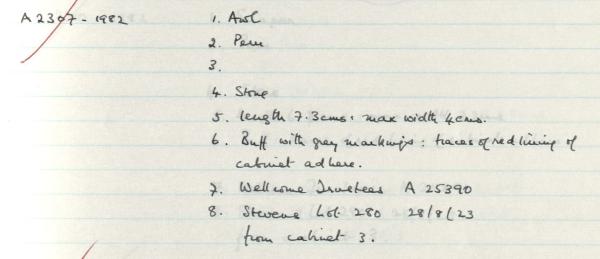 A 2307-1982 1. Awl
2. Peru
3.
4. Stone
5. length 7.3cms: max width 4cms.
6. Buff with grey markings: traces of red lining of
cabinet adhere.
7. Wellcome Trustees A 25390
8. Stevens Lot 280 28/8/23
from cabinet 3.